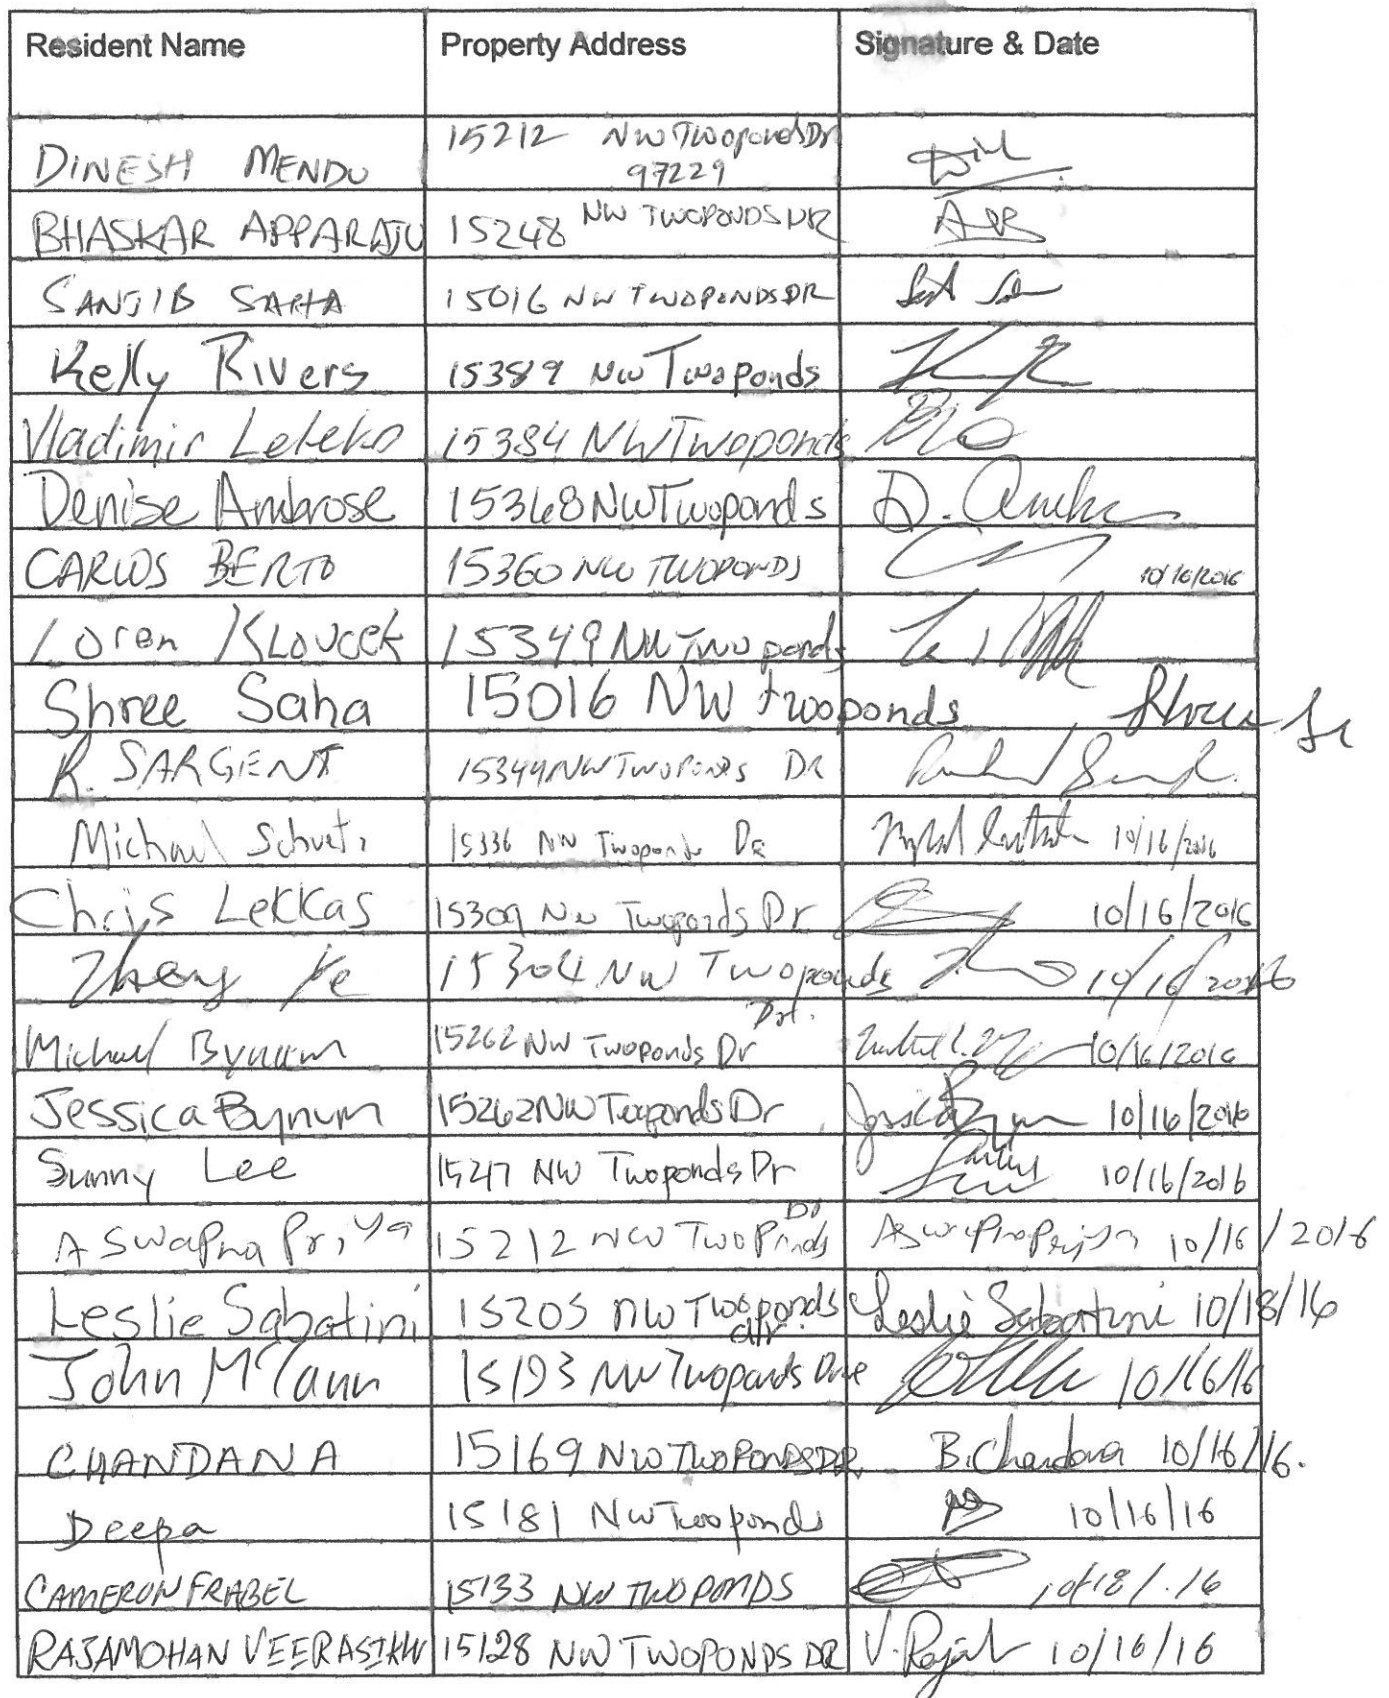 Resident Name Property Address Signature & Date
15212 NW Twoponds Dr
DINESH MENDU 97229
BHASKAR APPARAJU 15248 NW TWOPONDS DR
SANJIB SAHA 15016 NW TWOPONDS DR
Kelly Rivers 15389 NW Twoponds
Vladimir Leleko 15384 NW Twoponds
Denise Ambrose 15368 NW Twoponds D.
CARLOS BERTO 15360 NW TWOPONDS 10/16/2016
Loren Kloucek 15349 NW Twoponds
Shree Saha 15016 NW twoponds
R. SARGENT 15344 NW TWOPONDS DR
Michael 15336 NW Twoponds DR 10/16/2016
Chris Lekkas 15309 NW Twoponds Dr 10/16/2016
Zheng Ye 15304 NW Twoponds 10/16/2016
Michael Bynum 15262 NW Twoponds Dr 10/16/2016
Jessica Bynum 15262 NW Twoponds Dr Jessica Bynum 10/16/2016
Sunny Lee 15217 NW Twoponds Dr 10/16/2016
Dr
A Swapna Priya 15212 NW TwoPonds 10/16/2016
Leslie Sabatini 15205 NW Twoponds Leslie Sabatini 10/18/16
dr.
John McCann 15193 NW Twoponds Drive 10/16/16
CHANDANA 15169 NW TWOPONDS DR B. Chandana 10/16/16.
Deepa 15181 NW Twoponds 10/16/16
CAMERON FRABEL 15133 NW TWOPONDS 10/18/.16
RAJAMOHAN 15128 NW TWOPONDS DR V. 10/16/16